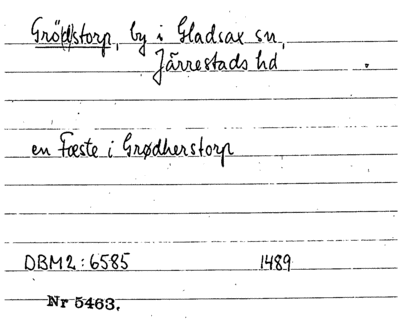 Grö(d)storp, by i Gladsax sn,
Järrestads hd
en Fæste i Grødherstorp
DBM2:6585 1489
Nr 5463.